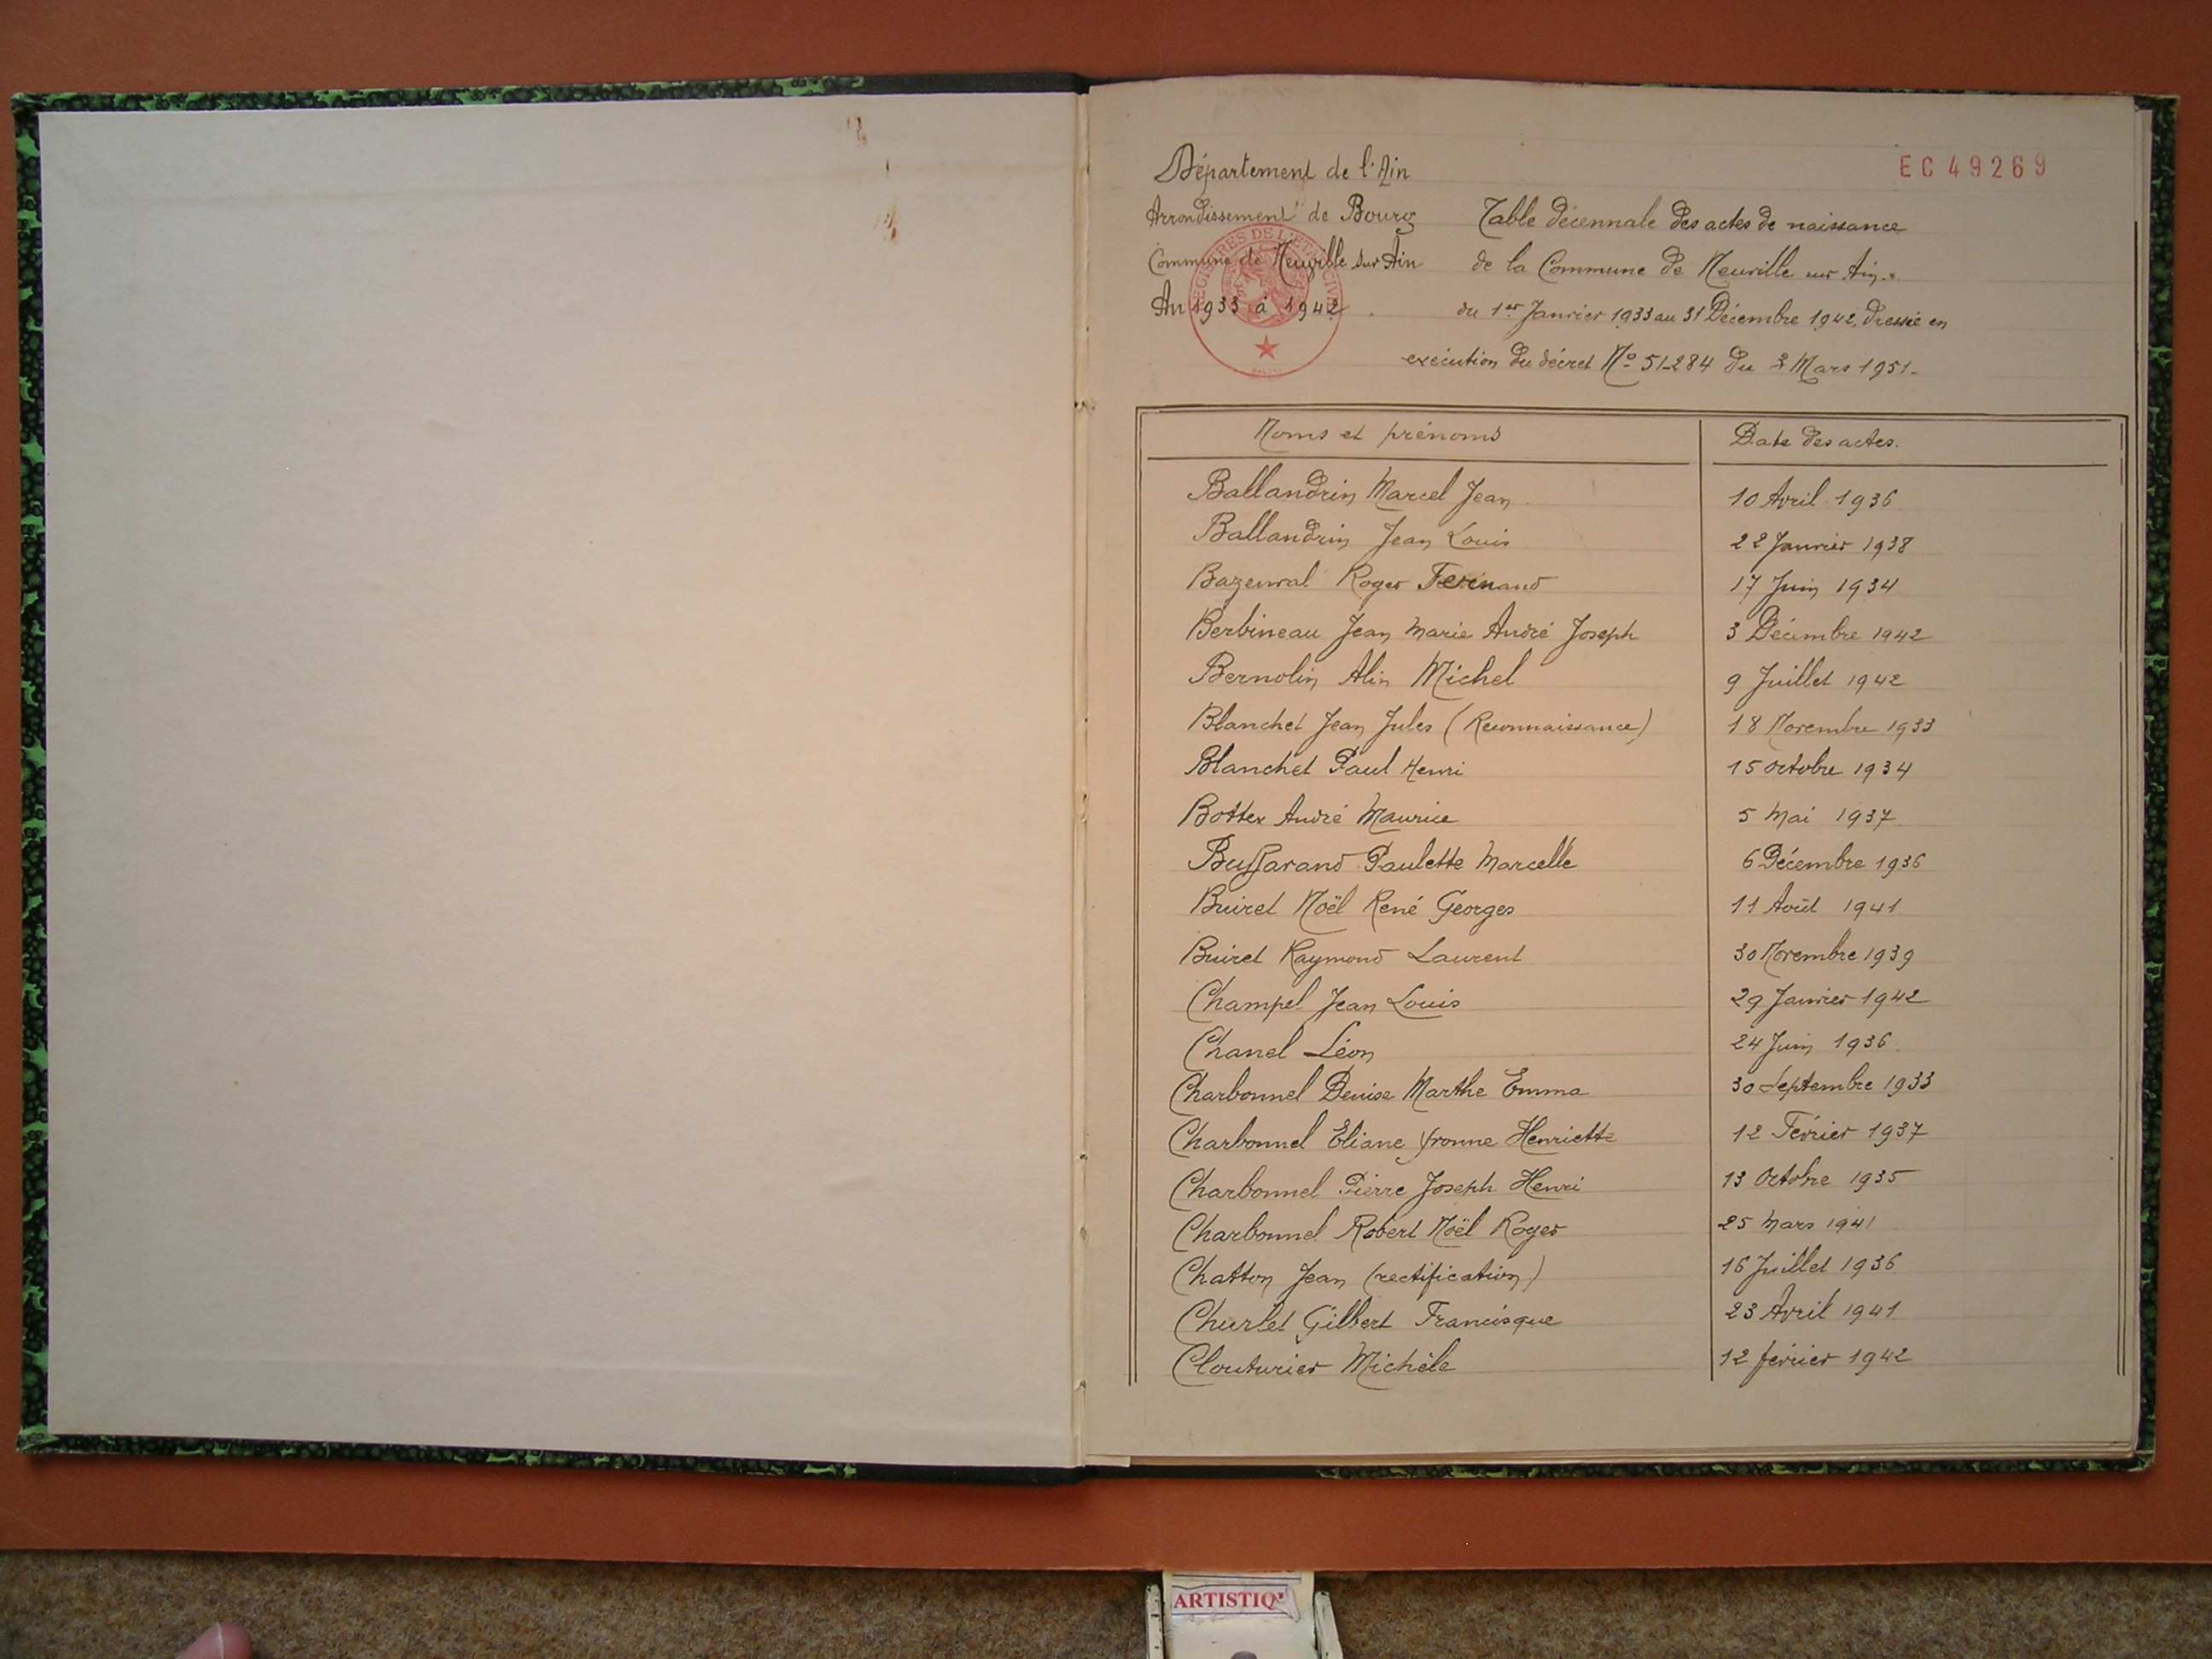 Département de l'Ain
EC 49269
Arrondissement de Bourg
Commune de Neuville sur Ain
An 1933 à 1942
REGISTRES DE L'ETAT CIVIL
Table décennale des actes de naissance
de la Commune de Neuville sur Ain.
du 1er Janvier 1933 au 31 Décembre 1942, dressée en
exécution du décret No 51-284 du 3 Mars 1951.
Noms et prénoms Date des actes.
Ballandrin Marcel Jean 10 Avril 1936
Ballandrin Jean Louis 22 Janvier 1938
Bazenval Roger Fernand 17 Juin 1934
Berbineau Jean Marie André Joseph 3 Décembre 1942
Bernolin Alin Michel 9 Juillet 1942
Blanchet Jean Jules (Reconnaissance) 18 Novembre 1933
Blanchet Paul Henri 15 octobre 1934
Bottex André Maurice 5 Mai 1937
Buffarand Paulette Marcelle 6 Décembre 1936
Buiret Noël René Georges 11 Août 1941
Buiret Raymond Laurent 30 Novembre 1939
Champel Jean Louis 29 Janvier 1942
Chanel Léon 24 Juin 1936
Charbonnel Denise Marthe Emma 30 Septembre 1933
Charbonnel Eliane Yvonne Henriette 12 Février 1937
Charbonnel Pierre Joseph Henri 13 Octobre 1935
Charbonnel Robert Noël Roger 25 Mars 1941
Chatton Jean (rectification) 16 Juillet 1936
Churlet Gilbert Francisque 23 Avril 1941
Clouturier Michèle 12 février 1942
ARTISTIQ